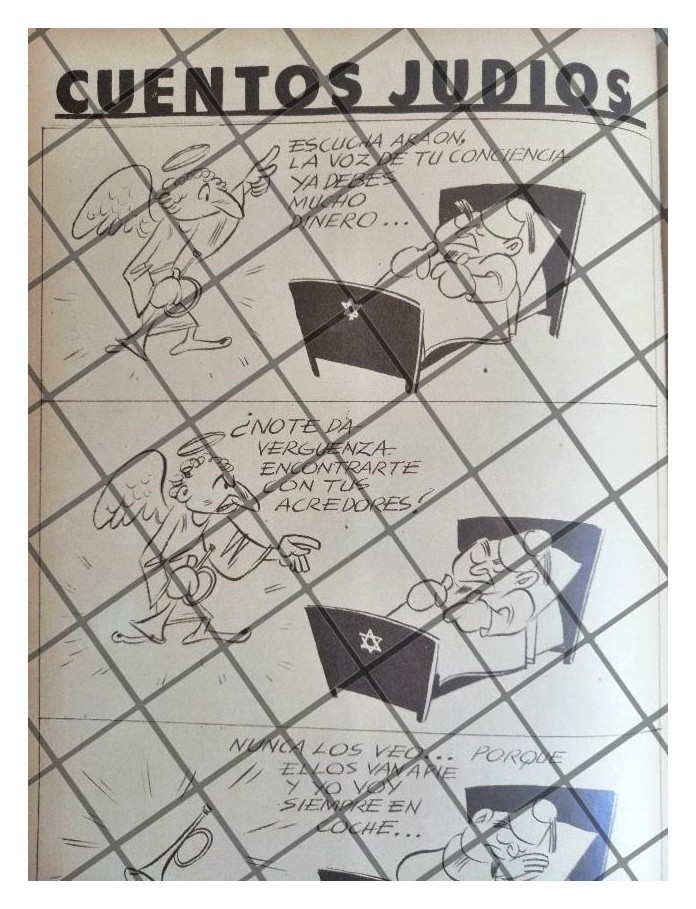 CUENTOS JUDIOS
ESCUCHA ARAON,
LA VOZ DE TU CONCIENCIA
YA DEBES
MUCHO
DINERO...
¿NOTE DA
VERGUENZA
ENCONTRARTE
CON TUS
ACREDORES?
NUNCA LOS VEO... PORQUE
ELLOS VAN APIE
Y YO VOY
SIEMPRE EN
COCHE...